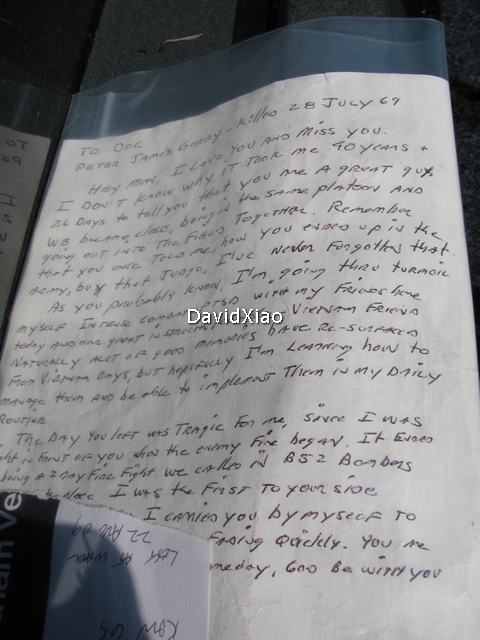 TO DOC
PETER JAMES GERRY - Killed 28 JULY 69
HEY MAN, I LOVE YOU AND MISS YOU.
I DON'T KNOW WHY IT TOOK ME 40 YEARS +
26 DAYS to tell you that you are A GREAT guy.
WE became close, being in the same platoon AND
going out INTO THE FIELD TOGETHER. Remember
that you once TOLD me, how you ended up in the
ARMY, boy that Judge, I'VE NEVER Forgotten that.
As you probably know, I'm going thru turmoil
myself INTENSE combat PTSD with my FRIENDS here
today AND one great VIETNAM FRIEND
NATURALLY ALOT OF good memories HAVE RE-SURFACED
From VIETNAM DAYS, but hopefully I'm LEARNING how to
MANAGE them AND be able to implement Them in my DAILY
ROUTINE
THE DAY YOU LEFT WAS TRAGIC FOR me, SINCE I WAS
IN FRONT OF YOU when the enemy FIRE began. IT ENDED
being A 2 DAY FIRE FIGHT. WE CALLED IN B52 BOMBERS
I WAS the FIRST TO YOUR SIDE
I CARRIED YOU BY MYSELF TO
FADING Quickly. YOU ARE
meday, GOD BE WITH YOU
DavidXiao
22 AUG 09
LAST AT WALL